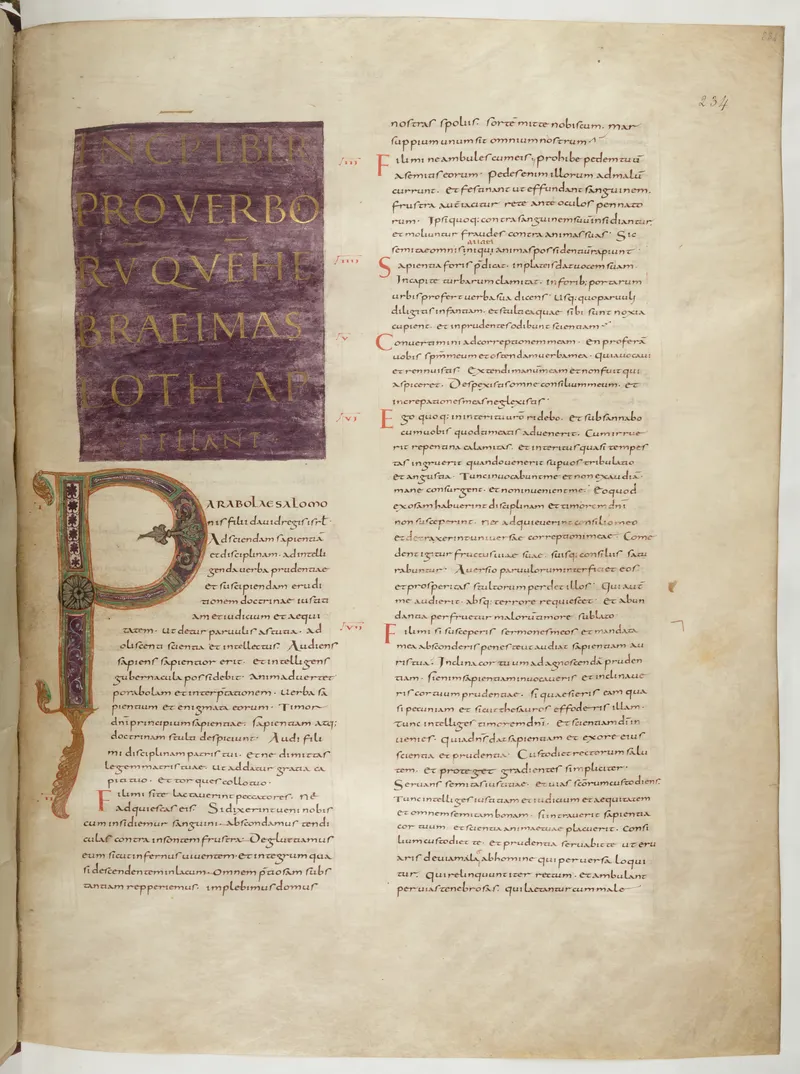 234
INCIPIT LIBER
PROVERBO
RŪ QUĒ HE
BRAEI MAS
LOTH AP
PELLANT
PARABOLAE SALOMO
nis filii dauid regis isrł
Ad sciendam sapientiā
et disciplinam. ad intelli
genda uerba prudentiae
et suscipiendam erudi
tionem doctrinae iustitia
am et iudicium et aequi
tatem. Ut detur paruulis astutia. ad
oliscenti scientia et intellectus. Audiens
sapiens sapientior erit. et intelligens
gubernacula possidebit. Animaduertet
parabolam et interpretationem. uerba sa
pientium et enigmata eorum. Timor
dn̄i principium sapientiae. sapientiam atq;
doctrinam stulti despiciunt. Audi fili
mi disciplinam patris tui. et ne dimittas
legem matris tuae. ut addatur gratia ca
piti tuo. et torques collo tuo.
Fili mi si te lactauerint peccatores. ne
adquiescas eis. Si dixerint ueni nobis
cum insidiemur sanguini. abscondamus tendi
culas contra insontem frustra. Deglutiamus
eum sicut infernus uiuentem. et integrum qua
si descendentem in lacum. Omnem p̄tiosam subs
tantiam repperiemus. implebimus domus
nostras spoliis. sortē mitte nobiscum. mar
suppium unum sit omnium nostrum.
III
Fili mi ne ambules cum eis. prohibe pedem tuū
a semitis eorum. pedes enim illorum ad malū
currunt. et festinant ut effundant sanguinem.
frustra autē iacitur rete ante oculos pennato
rum. Ipsi quoq; contra sanguinem suū insidiantur
et moliuntur fraudes contra animas suas. Sic
semitae omnis iniqui animas possidentiū rapiunt
auari
IIII
Sapientia foris p̄dicat. in plateis dat uocem suam.
In capite turbarum clamitat. in forib; portarum
urbis profert uerba sua dicens. Usq; quo paruuli
diligitis infantiam. et stulti ea quae sibi sunt noxia
cupient. et inprudentes odibunt scientiam.
V
Conuertimini ad correptionem meam. en proferā
uobis sp̄m meum et ostendam uerba mea. Quia uocaui
et rennuistis. Extendi manum eam et non fuit qui
aspiceret. Despexistis omne consilium meum. et
increpationes meas neglexistis.
VI
Ego quoq; in interitu uestro ridebo. et subsannabo
cum uobis quod timetis aduenerit. Cum irrue
rit repentina calamitas. et interitus quasi tempes
tas ingruerit. quando uenerit sup uos tribulatio
et angustia. Tunc inuocabunt me et non exaudiā
mane consurgent. et non inuenient me. Eo quod
exosam habuerint disciplinam et timorem dn̄i
non susceperint. nec adquieuerint consilio meo
et detraxerint uniuersae correptioni meae. Come
dent igitur fructus uiae suae. suisq; consiliis satu
rabuntur. Auersio paruulorum interficiet eos
et prosperitas stultorum perdet illos. Qui autē
me audierit. absq; terrore requiescet. et abun
dantia perfruetur malorū timore sublato
VII
Fili mi si susceperis sermones meos et mandata
mea absconderis penes te. ut audiat sapientiam au
ris tua. Inclina cor tuum ad agnoscendā pruden
tiam. si enim sapientiam inuocaueris et inclinaue
ris cor tuum prudentiae. si quaesieris eam quasi
pecuniam et sicut thesauros effoderis illam.
Tunc intelleges timorem dn̄i. et scientiam dī in
uenies. Quia dn̄s dat sapientiam et ex ore eius
scientia et prudentia. Custodiet rectorum salu
tem. et proteget gradientes simpliciter.
Seruans semitas iustitiae. et uias scōrum custodiens.
Tunc intelliges iustitiam et iudicium et aequitatem
et omnem semitam bonam. si intrauerit sapientia
cor tuum. et scientia animae tuae placuerit. Consi
lium custodiet te. et prudentia seruabit te. ut eru
aris de uia mala. ab homine qui peruersa loqui
tur. Qui relinquunt iter rectum. et ambulant
per uias tenebrosas. qui laetantur cum male